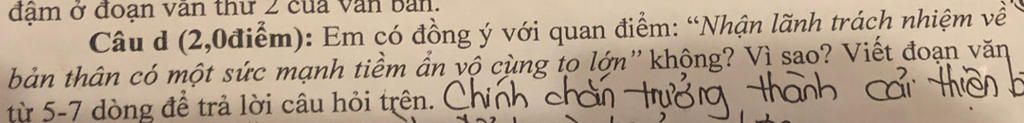 đậm ở đoạn văn thứ 2 của văn bản.
Câu d (2,0điểm): Em có đồng ý với quan điểm: “Nhận lãnh trách nhiệm về
bản thân có một sức mạnh tiềm ẩn vô cùng to lớn” không? Vì sao? Viết đoạn văn
từ 5-7 dòng để trả lời câu hỏi trên. Chính chắn trưởng thành cải thiện